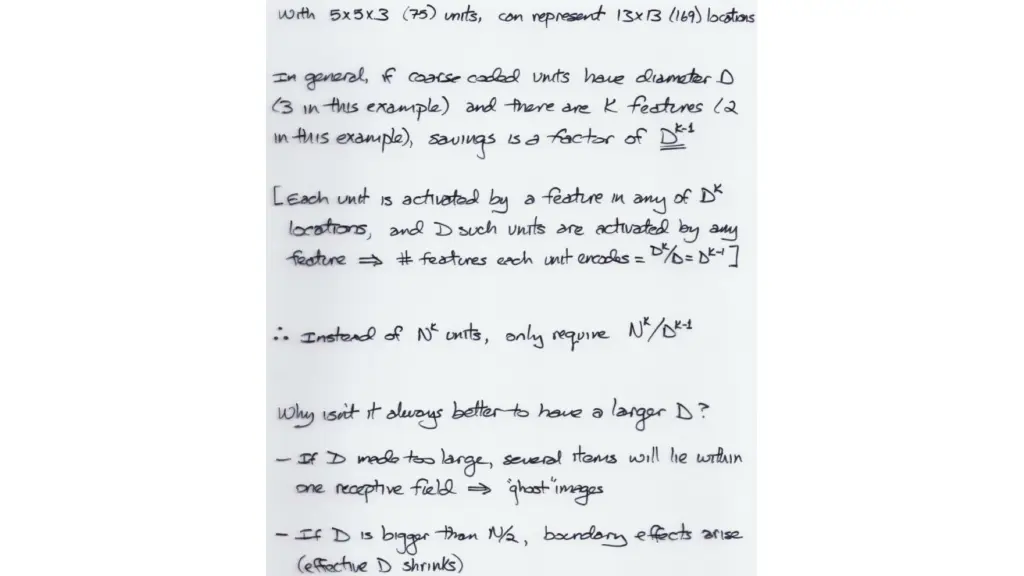 With 5x5x3 (75) units, can represent 13x13 (169) locations
In general, if coarse coded units have diameter D
(3 in this example) and there are K features (2
in this example), savings is a factor of D^K-1
[Each unit is activated by a feature in any of D^K
locations, and D such units are activated by any
feature ⇒ # features each unit encodes = D^K/D = D^K-1]
∴ Instead of N^K units, only require N^K/D^K-1
Why isn't it always better to have a larger D?
- If D made too large, several items will lie within
one receptive field ⇒ "ghost" images
- If D is bigger than N/2, boundary effects arise
(effective D shrinks)